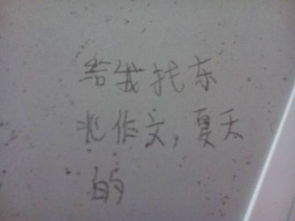 给我找东
北作文,夏天
的